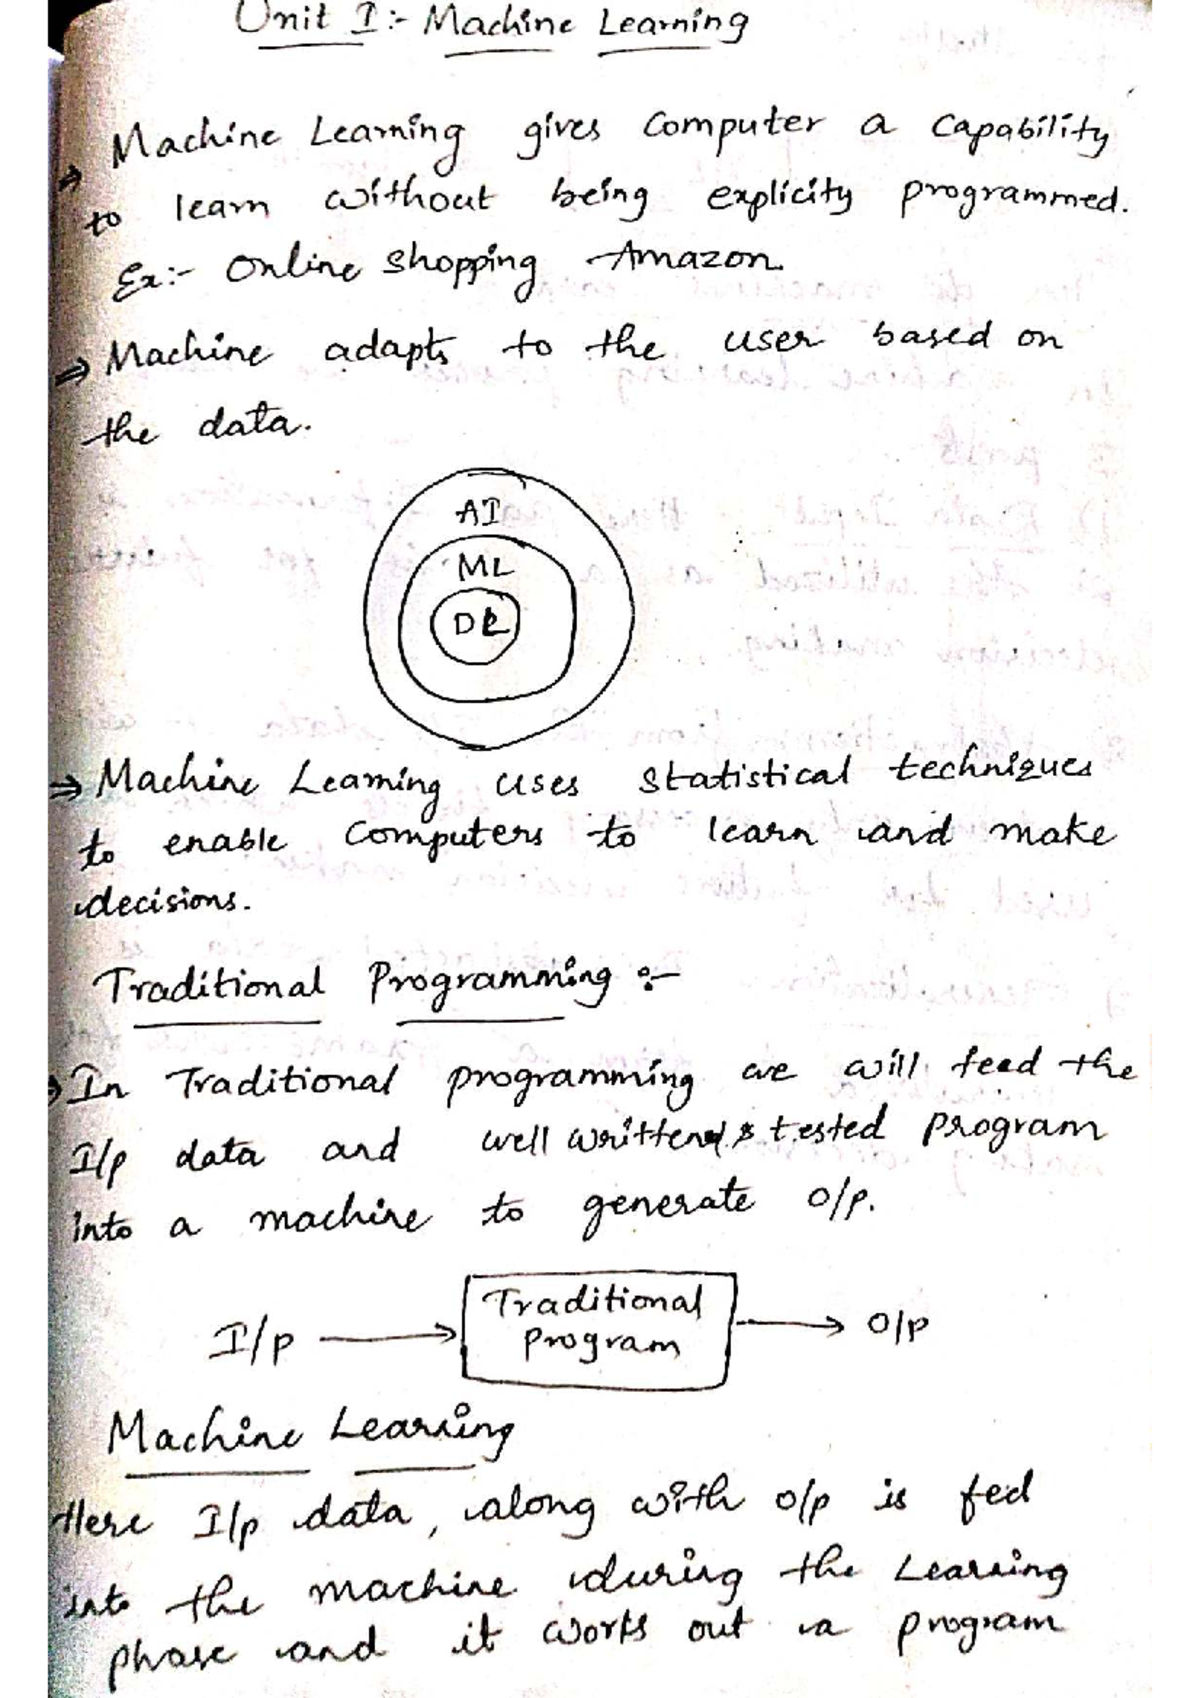 Unit I:- Machine Learning
⇒ Machine Learning gives Computer a Capability
to learn without being explicity programmed.
Ex:- Online Shopping Amazon.
⇒ Machine adapts to the user based on
the data.
AI
ML
DL
⇒ Machine Learning uses statistical techniques
to enable Computers to learn and make
decisions.
Traditional Programming :-
⇒ In Traditional programming we will feed the
I/p data and well written & tested program
into a machine to generate O/p.
I/p → Traditional → O/p
Program
Machine Learning
Here I/p data, along with O/p is fed
into the machine during the Learning
phase and it works out a program